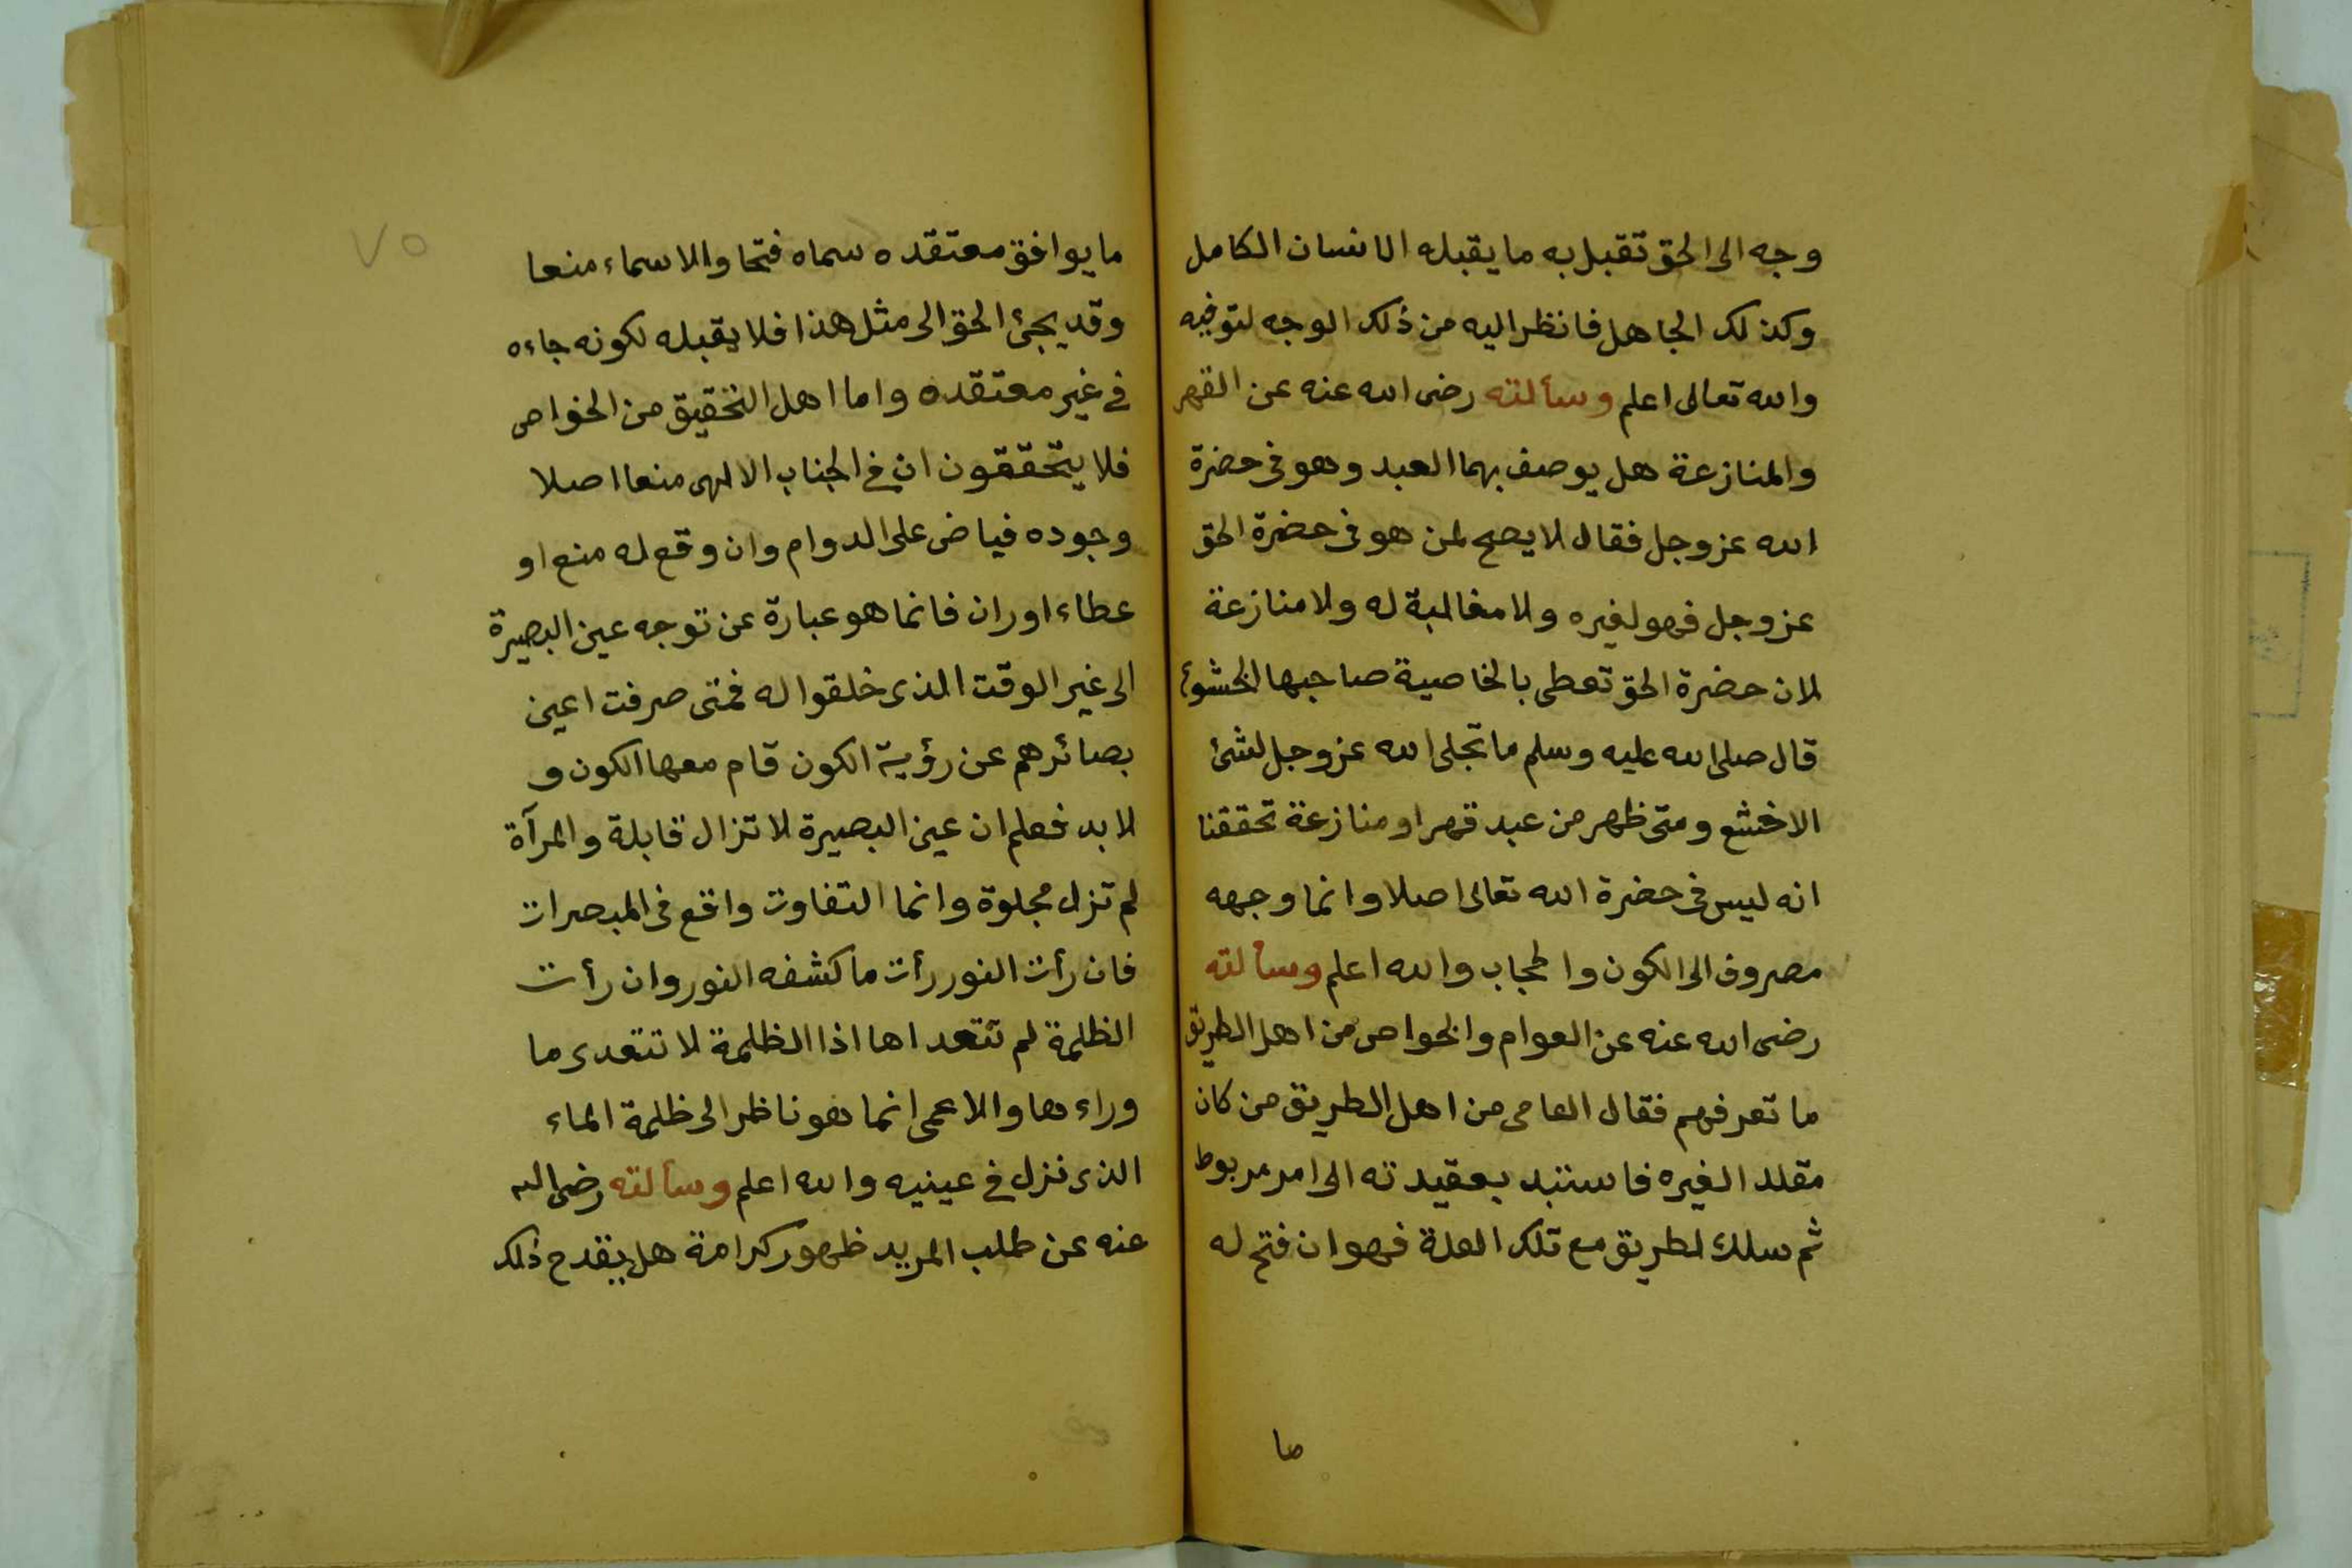 وجه الى الحق تقبل به ما يقبله الانسان الكامل
وكذلك الجاهل فانظر اليه من ذلك الوجه لتوفيه
والله تعالى اعلم وسألته رضى الله عنه عن القهر
والمنازعة هل يوصف بهما العبد وهو فى حضرة
الله عز وجل فقال لا يصح لمن هو فى حضرة الحق
عز وجل قهر لغيره ولا مغالبة له ولا منازعة
لان حضرة الحق تعطى بالخاصية صاحبها الخشوع
قال صلى الله عليه وسلم ما تجلى الله عز وجل لشئ
الا خشع ومتى ظهر من عبد قهر او منازعة تحققنا
انه ليس فى حضرة الله تعالى اصلا وانما وجهه
مصروف الى الكون والحجاب والله اعلم وسألته
رضى الله عنه عن العوام والخواص من اهل الطريق
ما تعرفهم فقال العامى من اهل الطريق من كان
مقلدا لغيره فاستند بعقيدته الى امر مربوط
ثم سلك الطريق مع تلك العلة فهو ان فتح له
ما
٧٥
ما يوافق معتقده سماه فتحا والا سماه منعا
وقد يجئ الحق الى مثل هذا فلا يقبله لكونه جاءه
فى غير معتقده واما اهل التحقيق من الخواص
فلا يتحققون ان فى الجناب الالهى منعا اصلا
وجوده فياض على الدوام وان وقع له منع او
عطاء اوران فانما هو عبارة عن توجه عين البصيرة
الى غير الوقت الذى خلقوا له فمتى صرفت اعين
بصائرهم عن رؤية الكون قام معها الكون و
لا بد فعلم ان عين البصيرة لا تزال قابلة والمرآة
لم تزل مجلوة وانما التفاوت واقع فى المبصرات
فان رأت النور رأت ما كشفه النور وان رأت
الظلمة لم تتعداها اذا الظلمة لا تتعدى ما
وراءها والاعمى انما هو ناظر الى ظلمة الماء
الذى نزل فى عينيه والله اعلم وسألته رضى الله
عنه عن طلب المريد ظهور كرامة هل يقدح ذلك